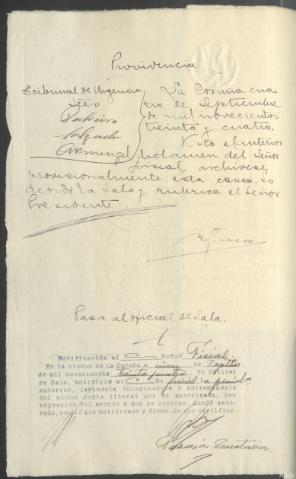 Providencia
Tribunal de Urgencia
Sres
Salgado
La Coruña cua
tro de Septiembre
de mil novecientos
treinta y cuatro.
Visto el anterior
dictamen del Señor
Fiscal archívese
provisionalmente esta causa. Lo
acordó la Sala y rubrica el Señor
Presidente
Pasa al oficial de Sala.
Notificación al Señor Fiscal
En la ciudad de La Coruña a cinco de Septbre
de mil novecientos treinta y cuatro Yo oficial
de Sala, notifiqué al Sr. fiscal la providª
anterior, leyéndola íntegramente y entregándole
del mismo copia literal por mi autorizada, con
expresión del asunto a que se contrae. Quedó ente-
rado, se dió por notificado y firma, de que certifico.
Secretario